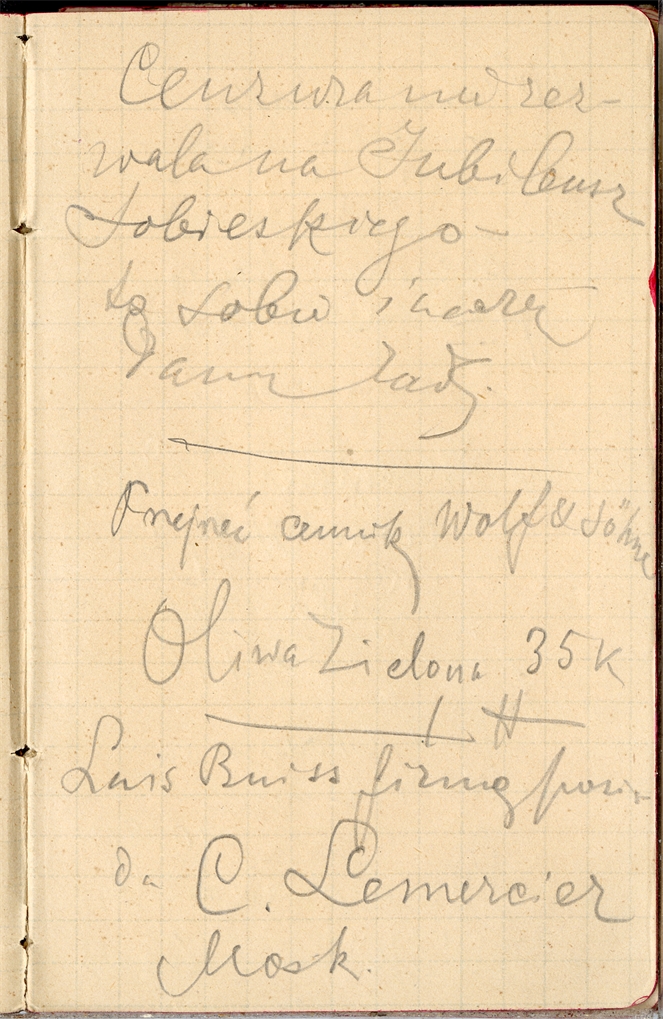 Cenzura nie zez-
wala na Jubileusz
Sobieskiego -
to sobie inaczej
damy radę.
Przejrzeć cennik Wolf & Söhne
Oliwa Zielona 35 K
Luis Buiss firmę posia-
da C. Lemercier
Mosk.